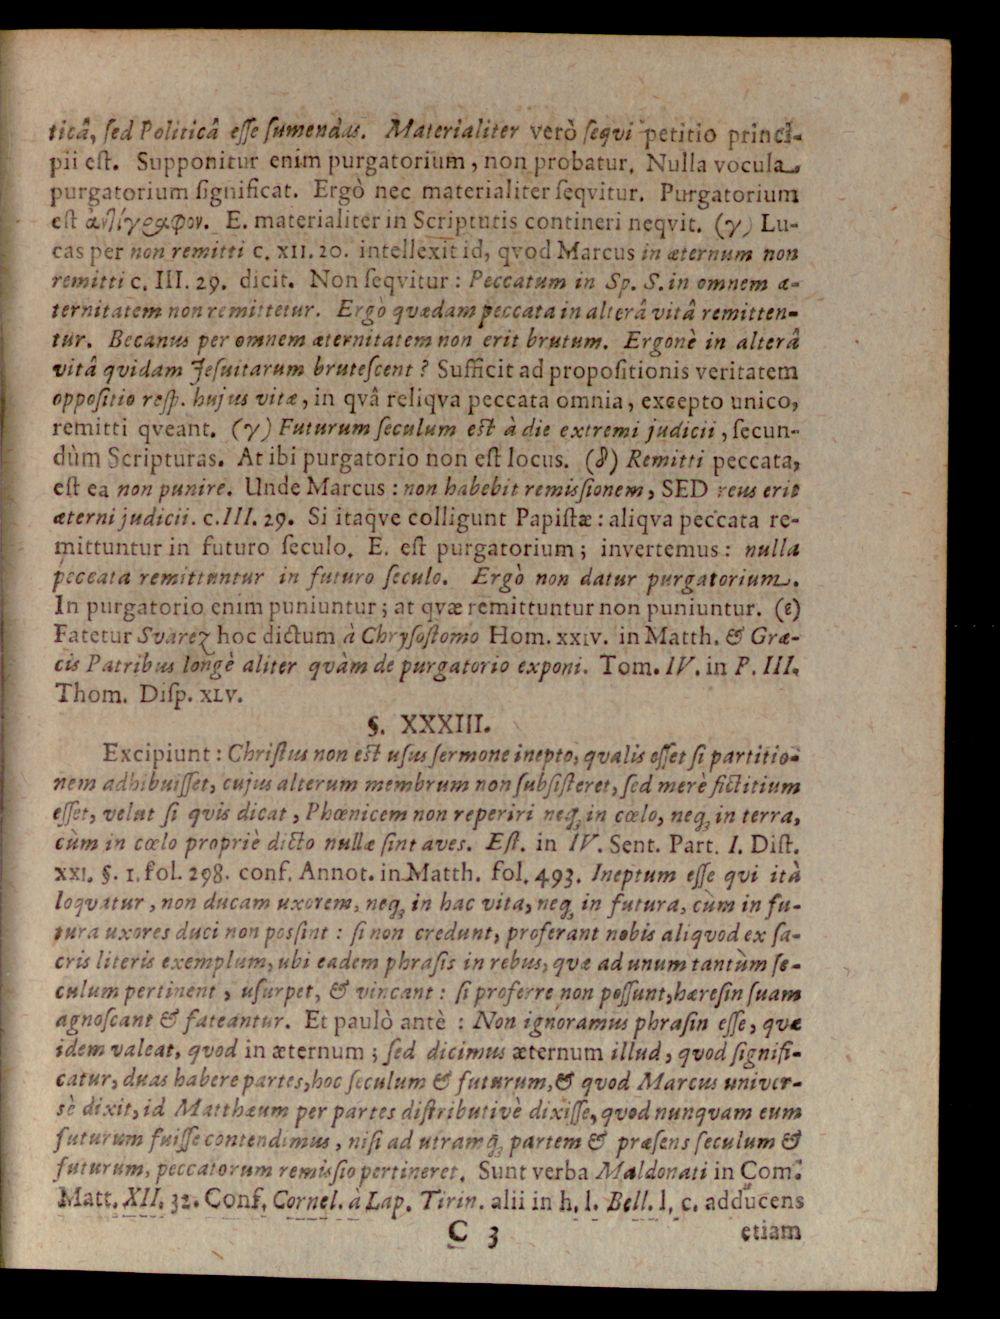 ticâ, ſed Politicâ eſſe ſumendas. Materialiter verò ſeqvi petitio princi-
pii eſt. Supponitur enim purgatorium, non probatur. Nulla vocula
purgatorium ſignificat. Ergò nec materialiter ſeqvitur. Purgatorium
eſt ἀντίγραφον. E. materialiter in Scripturis contineri neqvit. (γ) Lu-
cas per non remitti c. XII. 20. intellexit id, qvod Marcus in æternum non
remitti c. III. 29. dicit. Non ſeqvitur: Peccatum in Sp. S. in omnem æ-
ternitatem non remittetur. Ergò qvædam peccata in alterâ vitâ remitten-
tur. Becanus per omnem æternitatem non erit brutum. Ergonè in alterâ
vitâ qvidam Jeſuitarum bruteſcent? Sufficit ad propoſitionis veritatem
oppoſitio reſp. hujus vitæ, in qvâ reliqva peccata omnia, excepto unico,
remitti qveant. (γ) Futurum ſeculum eſt à die extremi judicii, ſecun-
dùm Scripturas. At ibi purgatorio non eſt locus. (δ) Remitti peccata,
eſt ea non punire. Unde Marcus: non habebit remiſſionem, SED reus erit
æterni judicii. c. III. 29. Si itaqve colligunt Papiſtæ: aliqva peccata re-
mittuntur in futuro ſeculo. E. eſt purgatorium; invertemus: nulla
peccata remittuntur in futuro ſeculo. Ergò non datur purgatorium.
In purgatorio enim puniuntur; at qvæ remittuntur non puniuntur. (ε)
Fatetur Svarez hoc dictum à Chryſoſtomo Hom. XXIV. in Matth. & Græ-
cis Patribus longè aliter qvàm de purgatorio exponi. Tom. IV. in P. III.
Thom. Diſp. XLV.
§. XXXIII.
Excipiunt: Chriſtus non eſt uſus ſermone inepto, qvalis eſſet ſi partitio-
nem adhibuiſſet, cujus alterum membrum non ſubſiſteret, ſed merè fictitium
eſſet, velut ſi qvis dicat, Phœnicem non reperiri neq; in cœlo, neq; in terra,
cùm in cœlo propriè dicto nullæ ſint aves. Eſt. in IV. Sent. Part. I. Diſt.
XXI. §. 1. fol. 298. conf. Annot. in Matth. fol. 493. Ineptum eſſe qvi ità
loqvatur, non ducam uxorem, neq; in hac vita, neq; in futura, cùm in fu-
tura uxores duci non poſſint: ſi non credunt, proferant nobis aliqvod ex ſa-
cris literis exemplum, ubi eadem phraſis in rebus, qvæ ad unum tantùm ſe-
culum pertinent, uſurpet, & vincant: ſi proferre non poſſunt, hæreſin ſuam
agnoſcant & fateantur. Et paulò antè: Non ignoramus phraſin eſſe, qvæ
idem valeat, qvod in æternum; ſed dicimus æternum illud, qvod ſignifi-
catur, duas habere partes, hoc ſeculum & futurum, & qvod Marcus univer-
sè dixit, id Matthæum per partes diſtributivè dixiſſe, qvod nunquam eum
futurum fuiſſe contendimus, niſi ad utramq; partem & præſens ſeculum &
futurum, peccatorum remiſſio pertineret. Sunt verba Maldonati in Com.
Matt. XII. 32. Conf. Cornel. à Lap. Tirin. alii in h. l. Bell. l. c. adducens
C 3 etiam